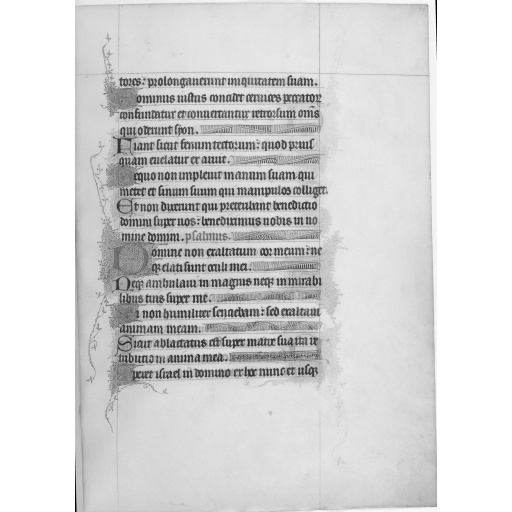 tores: prolongauerunt iniquitatem suam.
Dominus iustus concidet ceruices peccatorum
confundantur et conuertantur retrorsum omnes
qui oderunt syon.
Fiant sicut fenum tectorum: quod prius
quam euelatur exaruit.
De quo non impleuit manum suam qui
metet et sinum suum qui manipulos colliget.
Et non dixerunt qui preteribant benedictio
domini super uos: benediximus uobis in no
mine domini. psalmus.
Domine non exaltatum cor meum: ne
que elati sunt oculi mei.
Neque ambulaui in magnis neque in mirabi
libus tuis super me.
Si non humiliter senciebam: sed exaltaui
animam meam.
Sicut ablactatus est super matre sua ita re
tributio in anima mea.
Speret israel in domino ex hoc nunc et usque